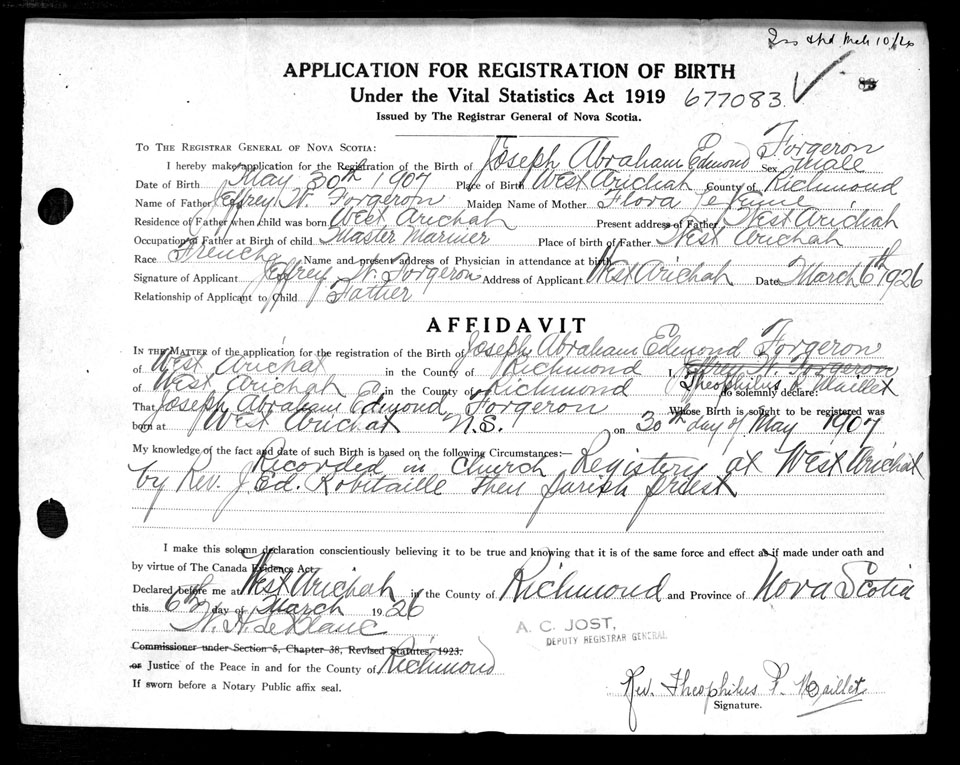 Mch 10/26
APPLICATION FOR REGISTRATION OF BIRTH
Under the Vital Statistics Act 1919 677083
Issued by The Registrar General of Nova Scotia.
TO THE REGISTRAR GENERAL OF NOVA SCOTIA:
I hereby make application for the Registration of the Birth of Joseph Abraham Edmond Forgeron Sex Male
Date of Birth May 30th 1907 Place of Birth West Arichat County of Richmond
Name of Father Jeffrey W. Forgeron Maiden Name of Mother Flora
Residence of Father when child was born West Arichat Present address of Father West Arichat
Occupation of Father at Birth of child Master Mariner Place of birth of Father West Arichat
Race French Name and present address of Physician in attendance at birth
Signature of Applicant Jeffrey W. Forgeron Address of Applicant West Arichat Date March 6th 1926
Relationship of Applicant to Child Father
AFFIDAVIT
IN THE MATTER of the application for the registration of the Birth of Joseph Abraham Edmond Forgeron
of West Arichat in the County of Richmond I, Jeffrey W. Forgeron Theophilus P. Maillet
of West Arichat in the County of Richmond do solemnly declare:
That Joseph Abraham Edmond Forgeron Whose Birth is sought to be registered was
born at West Arichat N.S. on 30th day of May 1907
My knowledge of the fact and date of such Birth is based on the following Circumstances:—
Recorded in Church Registery at West Arichat
by Rev. J. Ed. Robitaille then parish priest
I make this solemn declaration conscientiously believing it to be true and knowing that it is of the same force and effect as if made under oath and
by virtue of The Canada Evidence Act.
Declared before me at West Arichat in the County of Richmond and Province of Nova Scotia
this 6th day of March 1926
A. C. JOST,
DEPUTY REGISTRAR GENERAL
W. H. LeBlanc
Commissioner under Section 5, Chapter 38, Revised Statutes, 1923.
or Justice of the Peace in and for the County of Richmond
If sworn before a Notary Public affix seal.
Rev. Theophilus P. Maillet
Signature.